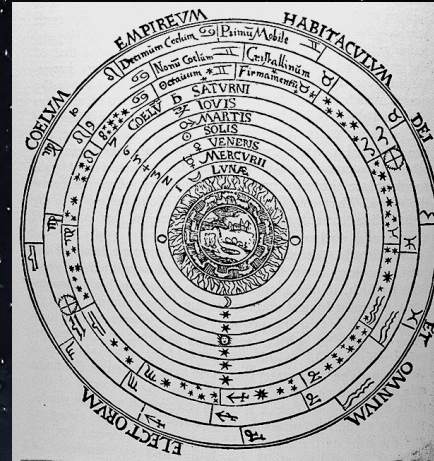 COELVM EMPIREVM HABITACVLVM DEI ET OMNIVM ELECTORVM
Decimum Coelum Primũ Mobile
Nonũ Coelum Cristallinum
Octauum Firmamentũ
COELV SATVRNI
IOVIS
MARTIS
SOLIS
VENERIS
MERCVRII
LVNÆ
7 6 5 4 3 2 1